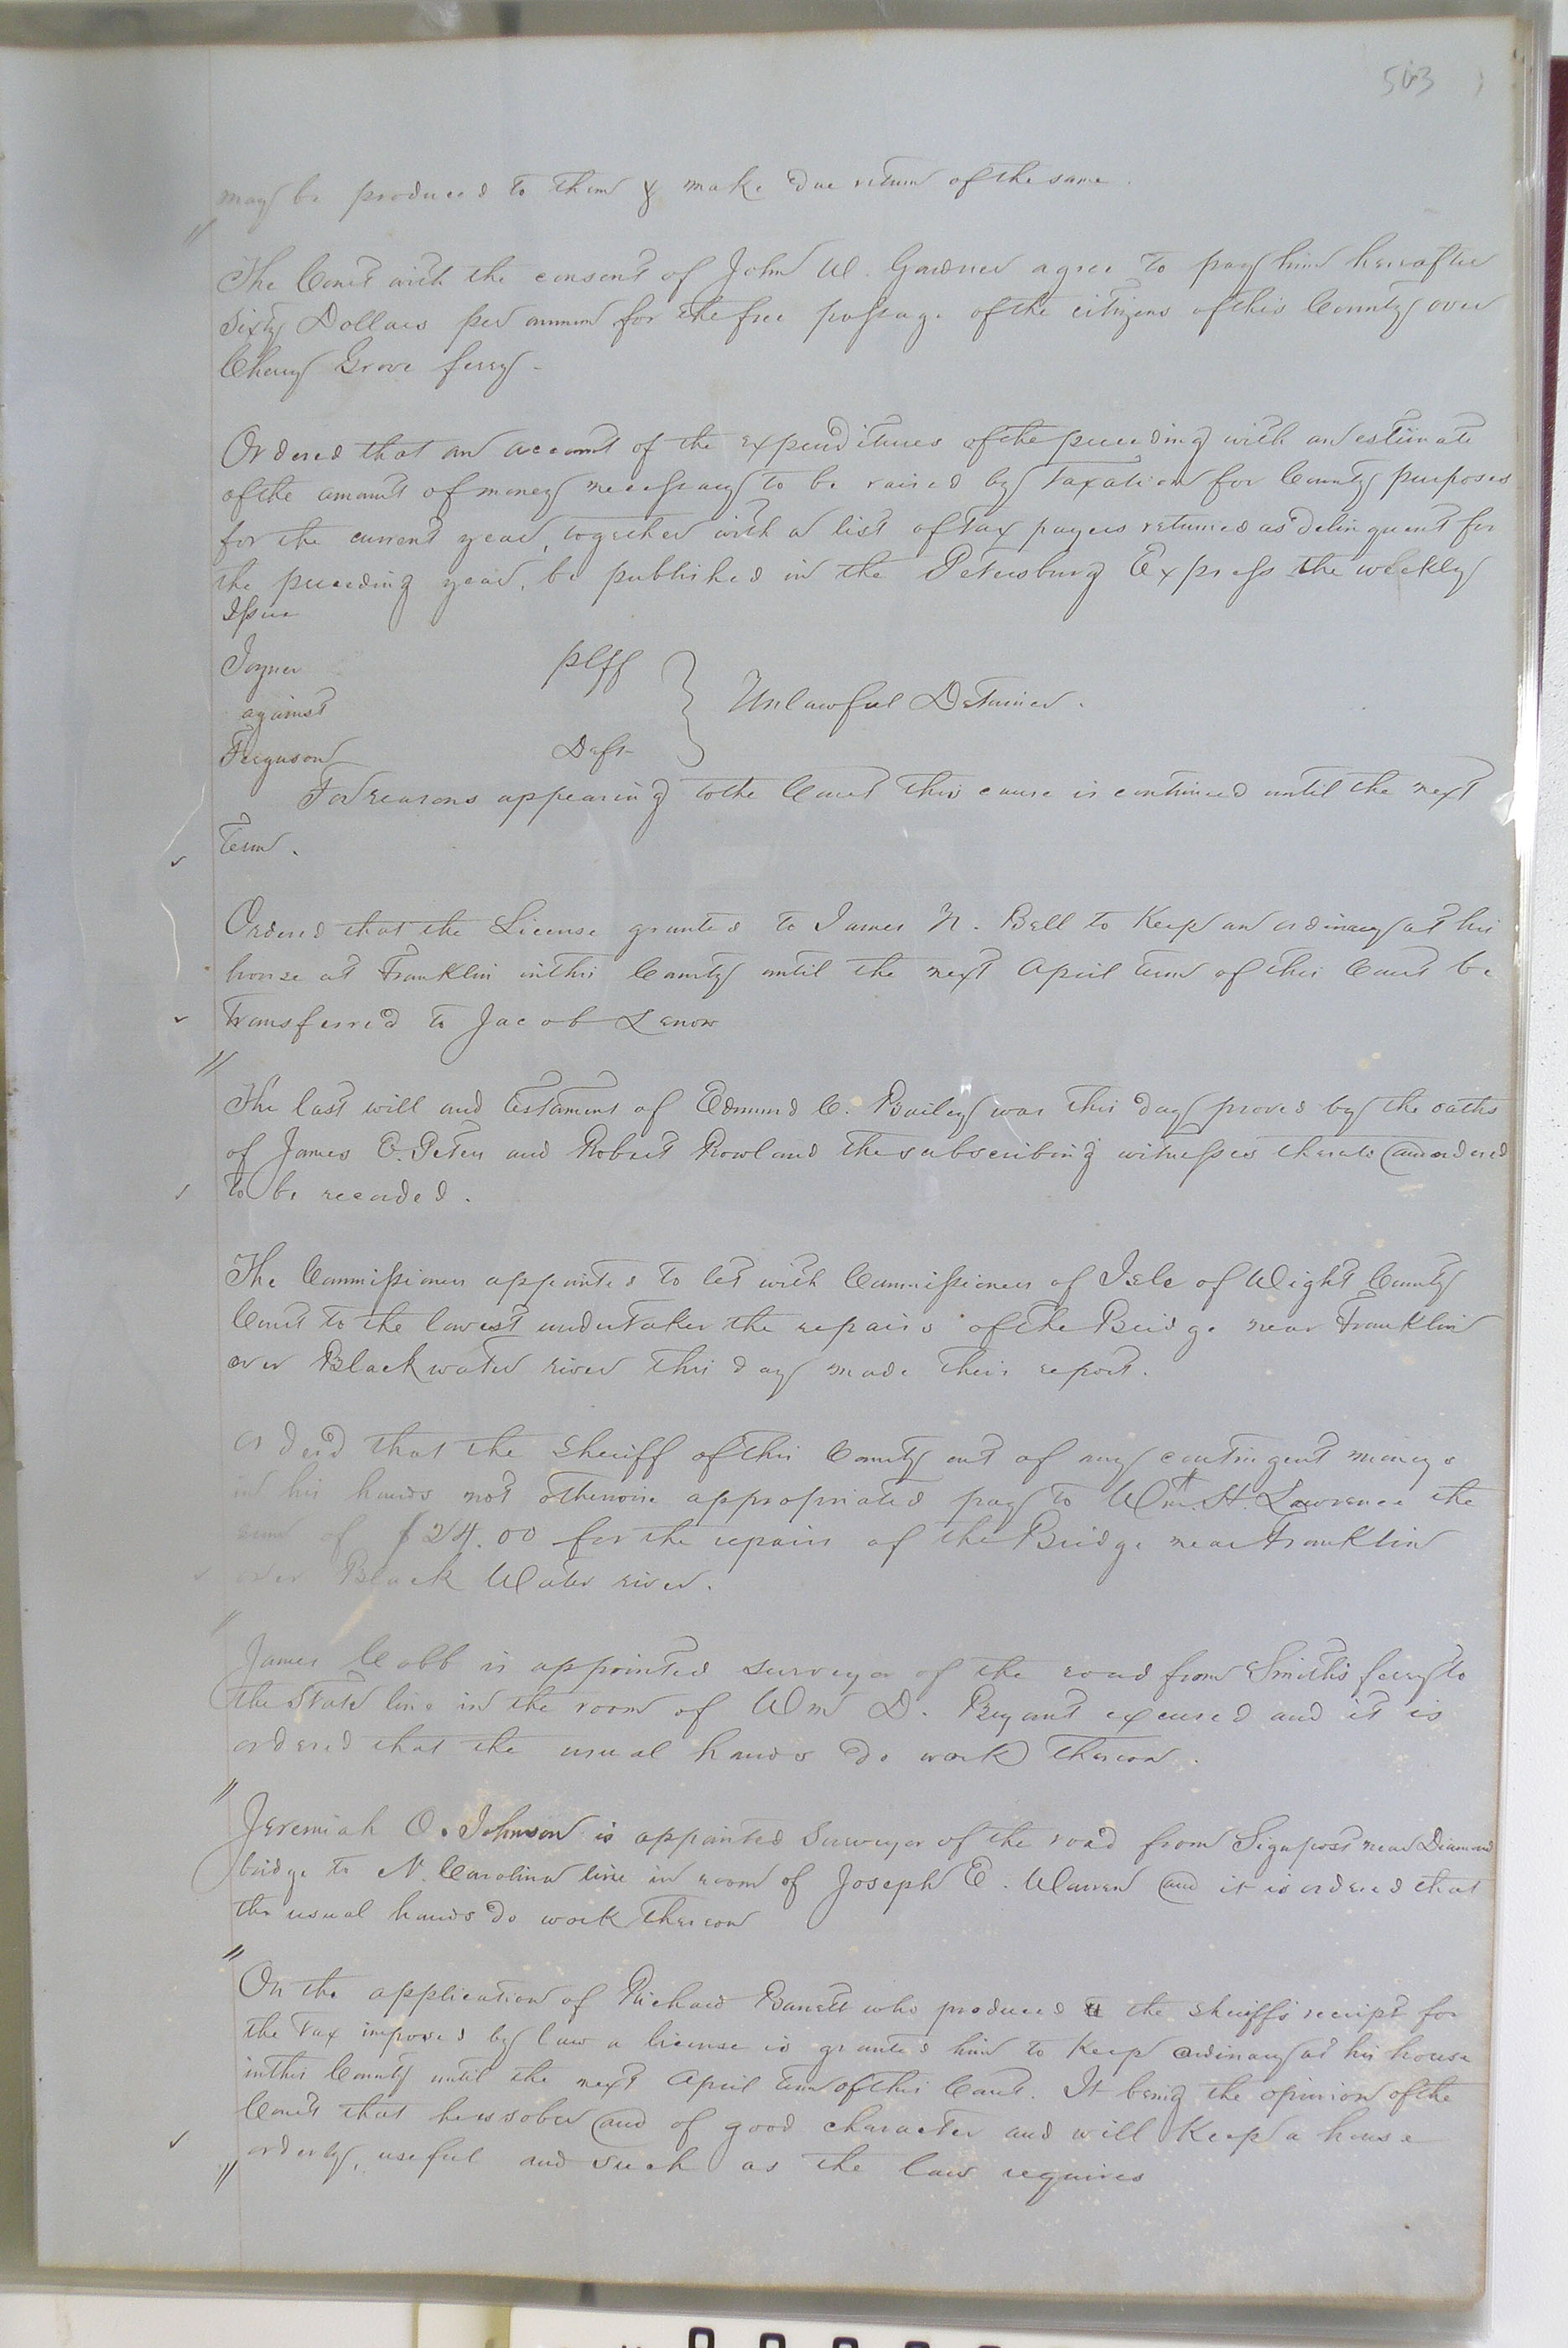 503
may be produced to them & make due return of the same.
The Court with the consent of John W. Gardner agree to pay him hereafter
Sixty Dollars per annum for the free passage of the citizens of this County over
Cherry Grove ferry -
Ordered that an account of the expenditures of the preceeding with an estimate
of the amount of money necessary to be raised by Taxation for County purposes
for the current year, together with a list of tax payers returned as delinquent for
the preceeding year, be published in the Petersburg Express the weekly
Issue
Joyner plff
against Unlawful Detainer.
Ferguson Deft
For reasons appearing to the Court this cause is continued until the next
Term.
Ordered that the License granted to James N. Bell to Keep an ordinary at his
house at Franklin in this County until the next April term of this Court be
Transferred to Jacob Lenow
The last will and testament of Edmund C. Bailey was this day proved by the oaths
of James O. Peters and Robert Rowland the subscribing witnesses thereto and ordered
to be recorded.
The Commissioners appointed to let with Commissioners of Isle of Wight County
Court to the lowest undertaker the repairs of the Bridge near Franklin
over Blackwater river this day made their report.
Orderd that the Sheriff of this County out of any contingent moneys
in his hands not otherwise appropriated pay to Wm. H. Lawrence the
sum of $24.00 for the repairs of the Bridge near Franklin
over Black Water river.
James Cobb is appointed surveyor of the road from Smith's ferry to
the State line in the room of Wm D. Bryant excused and it is
ordered that the usual hands do work thereon.
Jeremiah O. Johnson is appointed Surveyor of the road from Signpost near Diamond
bridge to N. Carolina line in room of Joseph E. Warren and it is ordered that
the usual hands do work thereon
On the application of Richard Barrett who produced the sheriff's receipt for
the Tax imposed by law a license is granted him to Keep ordinary at his house
in this County until the next April term of this Court. It being the opinion of the
Court that he is sober and of good character and will Keep a house
orderly, useful and such as the law requires